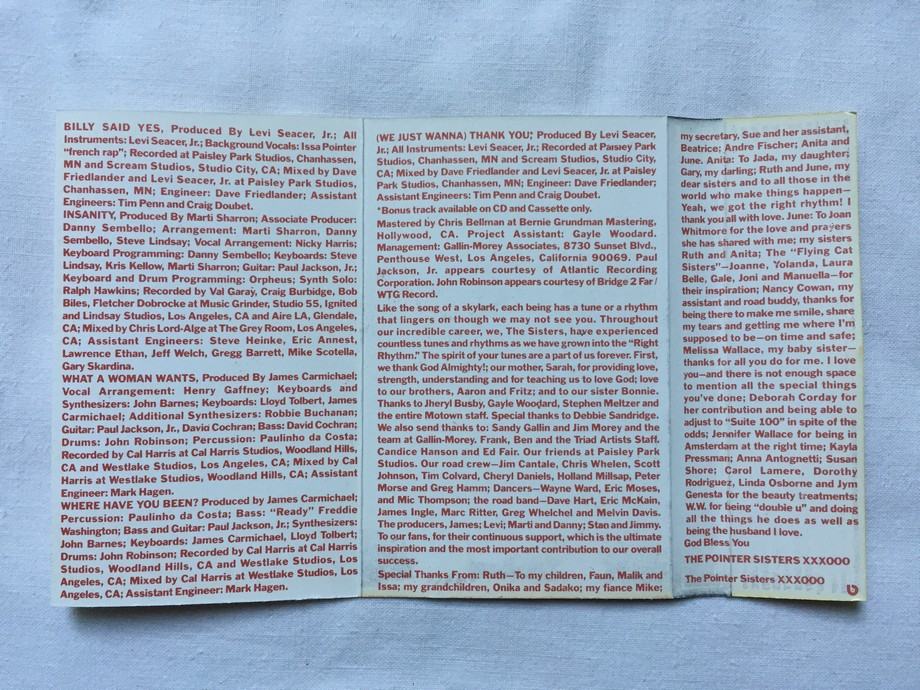 BILLY SAID YES, Produced By Levi Seacer, Jr.; All
Instruments: Levi Seacer, Jr.; Background Vocals: Issa Pointer
"french rap"; Recorded at Paisley Park Studios, Chanhassen,
MN and Scream Studios, Studio City, CA; Mixed by Dave
Friedlander and Levi Seacer, Jr. at Paisley Park Studios,
Chanhassen, MN; Engineer: Dave Friedlander; Assistant
Engineers: Tim Penn and Craig Doubet.
INSANITY, Produced By Marti Sharron; Associate Producer:
Danny Sembello; Arrangement: Marti Sharron, Danny
Sembello, Steve Lindsay; Vocal Arrangement: Nicky Harris;
Keyboard Programming: Danny Sembello; Keyboards: Steve
Lindsay, Kris Kellow, Marti Sharron; Guitar: Paul Jackson, Jr.;
Keyboard and Drum Programming: Orpheus; Synth Solo:
Ralph Hawkins; Recorded by Val Garay, Craig Burbidge, Bob
Biles, Fletcher Dobrocke at Music Grinder, Studio 55, Ignited
and Lindsay Studios, Los Angeles, CA and Aire LA, Glendale,
CA; Mixed by Chris Lord-Alge at The Grey Room, Los Angeles,
CA; Assistant Engineers: Steve Heinke, Eric Annest,
Lawrence Ethan, Jeff Welch, Gregg Barrett, Mike Scotella,
Gary Skardina.
WHAT A WOMAN WANTS, Produced By James Carmichael;
Vocal Arrangement: Henry Gaffney; Keyboards and
Synthesizers: John Barnes; Keyboards: Lloyd Tolbert, James
Carmichael; Additional Synthesizers: Robbie Buchanan;
Guitar: Paul Jackson, Jr., David Cochran; Bass: David Cochran;
Drums: John Robinson; Percussion: Paulinho da Costa;
Recorded by Cal Harris at Cal Harris Studios, Woodland Hills,
CA and Westlake Studios, Los Angeles, CA; Mixed by Cal
Harris at Westlake Studios, Woodland Hills, CA; Assistant
Engineer: Mark Hagen.
WHERE HAVE YOU BEEN? Produced by James Carmichael;
Percussion: Paulinho da Costa; Bass: "Ready" Freddie
Washington; Bass and Guitar: Paul Jackson, Jr.; Synthesizers:
John Barnes; Keyboards: James Carmichael, Lloyd Tolbert;
Drums: John Robinson; Recorded by Cal Harris at Cal Harris
Studios, Woodland Hills, CA and Westlake Studios, Los
Angeles, CA; Mixed by Cal Harris at Westlake Studios, Los
Angeles, CA; Assistant Engineer: Mark Hagen.
(WE JUST WANNA) THANK YOU; Produced By Levi Seacer,
Jr.; All Instruments: Levi Seacer, Jr.; Recorded at Paisley Park
Studios, Chanhassen, MN and Scream Studios, Studio City,
CA; Mixed by Dave Friedlander and Levi Seacer, Jr. at Paisley
Park Studios, Chanhassen, MN; Engineer: Dave Friedlander;
Assistant Engineers: Tim Penn and Craig Doubet.
*Bonus track available on CD and Cassette only.
Mastered by Chris Bellman at Bernie Grundman Mastering,
Hollywood, CA. Project Assistant: Gayle Woodard.
Management: Gallin-Morey Associates, 8730 Sunset Blvd.,
Penthouse West, Los Angeles, California 90069. Paul
Jackson, Jr. appears courtesy of Atlantic Recording
Corporation. John Robinson appears courtesy of Bridge 2 Far /
WTG Record.
Like the song of a skylark, each being has a tune or a rhythm
that lingers on though we may not see you. Throughout
our incredible career, we, The Sisters, have experienced
countless tunes and rhythms as we have grown into the "Right
Rhythm." The spirit of your tunes are a part of us forever. First,
we thank God Almighty!; our mother, Sarah, for providing love,
strength, understanding and for teaching us to love God; love
to our brothers, Aaron and Fritz; and to our sister Bonnie.
Thanks to Jheryl Busby, Gayle Woodard, Stephen Meltzer and
the entire Motown staff. Special thanks to Debbie Sandridge.
We also send thanks to: Sandy Gallin and Jim Morey and the
team at Gallin-Morey. Frank, Ben and the Triad Artists Staff.
Candice Hanson and Ed Fair. Our friends at Paisley Park
Studios. Our road crew—Jim Cantale, Chris Whelen, Scott
Johnson, Tim Colvard, Cheryl Daniels, Holland Millsap, Peter
Morse and Greg Hamm; Dancers—Wayne Ward, Eric Moses,
and Mic Thompson; the road band—Dave Hart, Eric McKain,
James Ingle, Marc Ritter, Greg Whelchel and Melvin Davis.
The producers, James; Levi; Marti and Danny; Stan and Jimmy.
To our fans, for their continuous support, which is the ultimate
inspiration and the most important contribution to our overall
success.
Special Thanks From: Ruth—To my children, Faun, Malik and
Issa; my grandchildren, Onika and Sadako; my fiance Mike;
my secretary, Sue and her assistant,
Beatrice; Andre Fischer; Anita and
June. Anita: To Jada, my daughter;
Gary, my darling; Ruth and June, my
dear sisters and to all those in the
world who make things happen—
Yeah, we got the right rhythm! I
thank you all with love. June: To Joan
Whitmore for the love and prayers
she has shared with me; my sisters
Ruth and Anita; The "Flying Cat
Sisters"—Joanne, Yolanda, Laura
Belle, Gale, Joni and Manuella—for
their inspiration; Nancy Cowan, my
assistant and road buddy, thanks for
being there to make me smile, share
my tears and getting me where I'm
supposed to be—on time and safe;
Melissa Wallace, my baby sister—
thanks for all you do for me. I love
you—and there is not enough space
to mention all the special things
you've done; Deborah Corday for
her contribution and being able to
adjust to "Suite 100" in spite of the
odds; Jennifer Wallace for being in
Amsterdam at the right time; Kayla
Pressman; Anna Antognetti; Susan
Shore; Carol Lamere, Dorothy
Rodriguez, Linda Osborne and Jym
Genesta for the beauty treatments;
W.W. for being "double u" and doing
all the things he does as well as
being the husband I love.
God Bless You
THE POINTER SISTERS XXXOOO
The Pointer Sisters XXXOOO